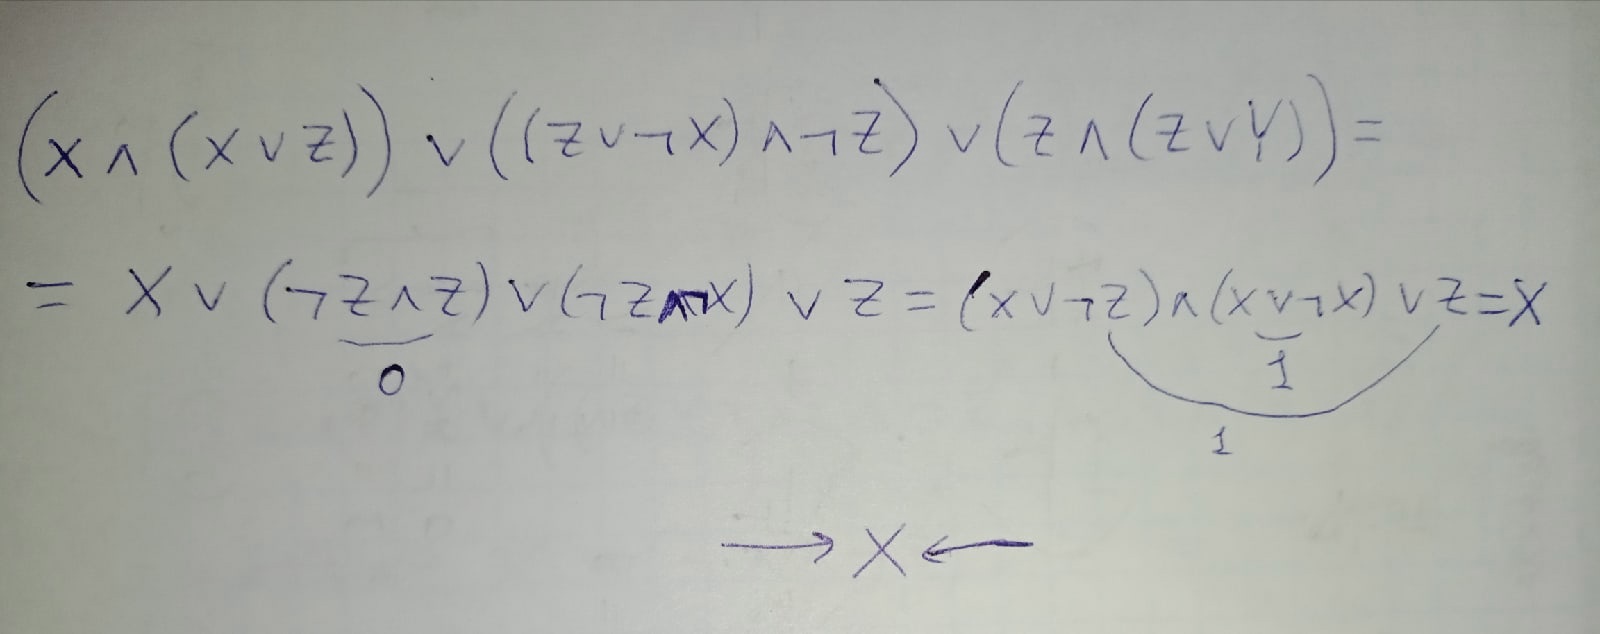 (X ∧ (X ∨ Z)) ∨ ((Z ∨ ¬X) ∧ ¬Z) ∨ (Z ∧ (Z ∨ Y)) =
= X ∨ (¬Z ∧ Z) ∨ (¬Z ∧ ¬X) ∨ Z = (X ∨ ¬Z) ∧ (X ∨ ¬X) ∨ Z = X
0 1
1
→ X ←